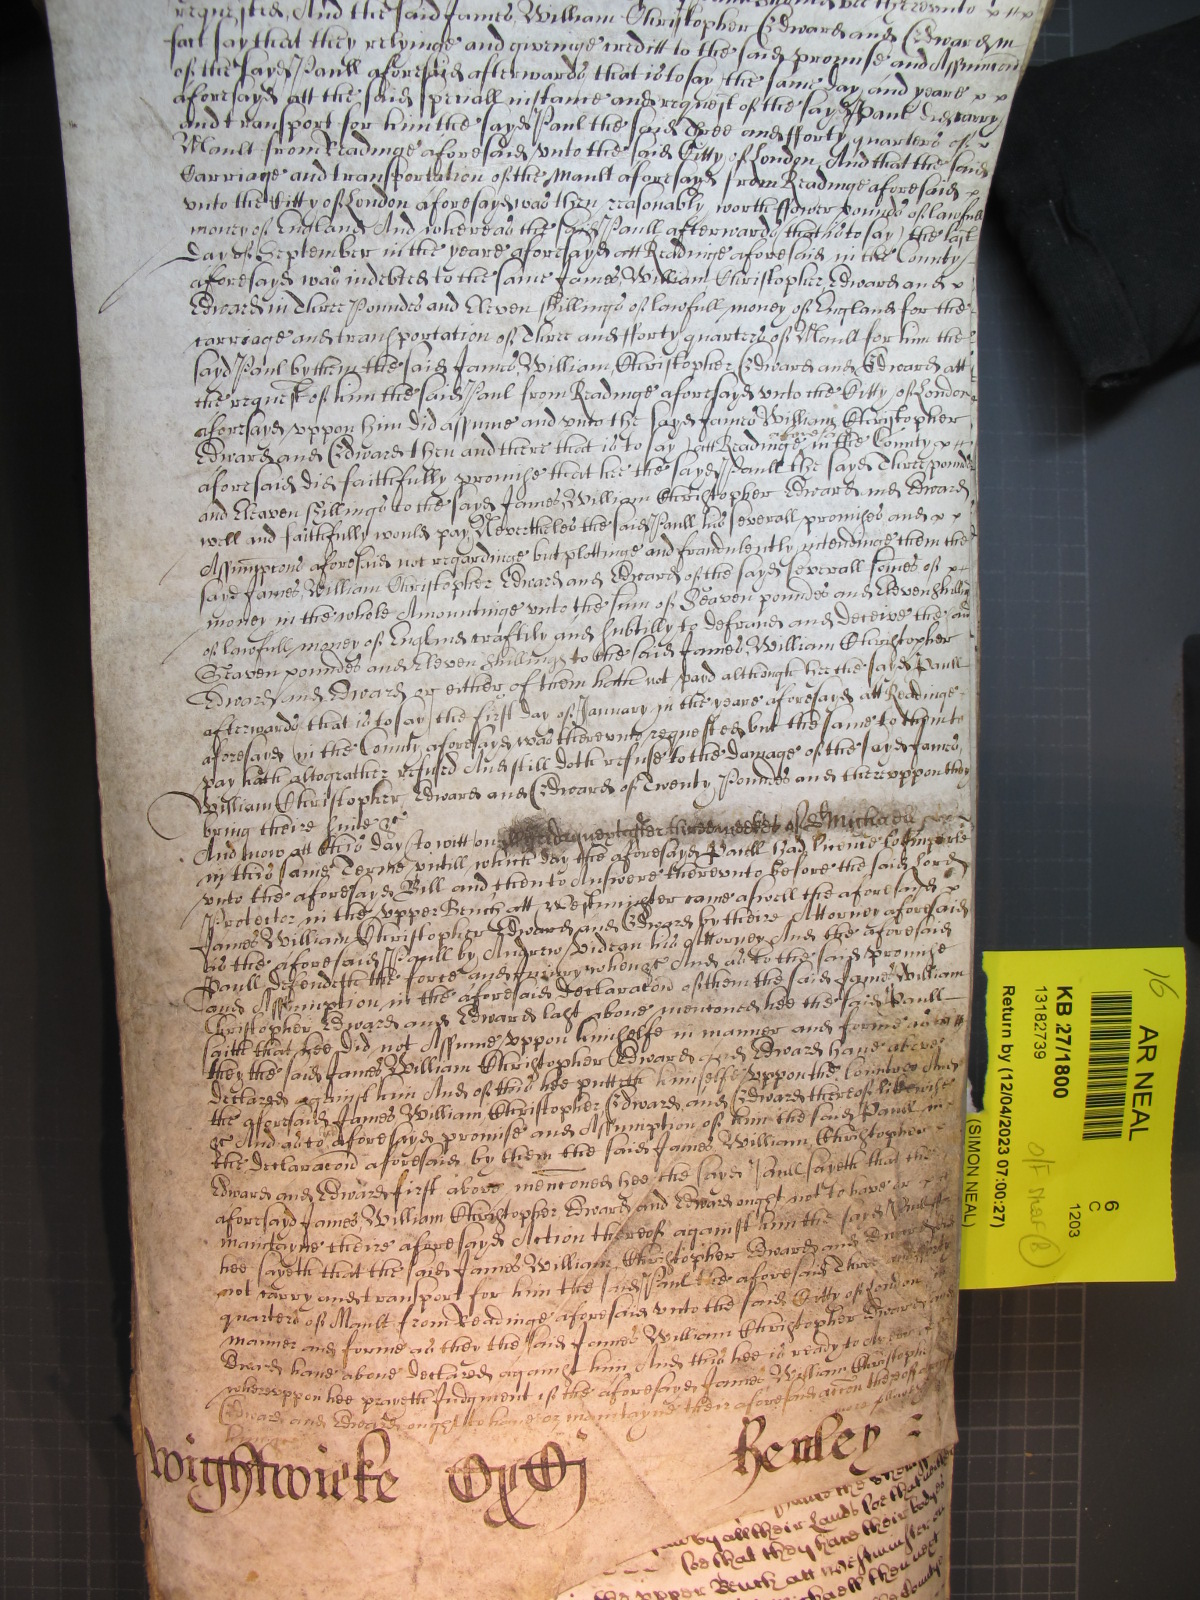 requested, And the said James, William Christopher Edward and Edward in
fact say that they relyinge and giveinge creditt to the said promise and Assumcion
of the sayd Paull aforesaid afterwards that is to say the same day and yeare
aforesayd att the said speciall instance and request of the sayd Paul did carry
and transport for him the sayd Paul the said Three and fforty quarters of
Mault from Readinge aforesaid unto the said Citty of London And that the said
Carriage and transportation of the Mault aforesayd from Readinge aforesaid
unto the Citty of London aforesayd was then reasonably worth ffower pounds of lawfull
money of England And whereas the said Paull afterwards that is to say the last
day of September in the yeare aforesayd att Readinge aforesaid in the County
aforesayd was indebted to the same James, William Christopher, Edward and
Edward in Three Poundes and Eleven shillings of lawfull money of England for the
carriage and transportation of Three and fforty quarters of Mault for him the
sayd Paul by them the said James, William, Christopher Edward and Edward att
the request of him the said Paul from Readinge aforesayd unto the Citty of London
aforesayd uppon him did assume and unto the sayd James William Christopher
Edward and Edward then and there that is to say att Readinge aforesaid in the County
aforesaid did faithfully promise that hee the sayd Paull the sayd Three pounds
and Eleaven shillings to the sayd James William Christopher Edward and Edward
well and faithfully would pay Neverthelesse the said Paull his severall promises and
Assumptions aforesaid not regardinge but plottinge and fraudulently intendinge them the
sayd James William Christopher Edward and Edward of the sayd severall somes of
money in the whole Amountinge unto the sum of Seaven poundes and Eleven shillings
of lawfull money of England craftily and subtilly to defraud and deceive the said
Seaven poundes and Eleven shillings to the said James William Christopher
Edward and Edward or either of them hath not payd although hee the sayd Paull
afterwards that is to say the first day of January in the yeare aforesayd att Readinge
aforesayd in the County aforesayd was thereunto requested but the same to them to
pay hath altogeather refused And still doth refuse to the damage of the sayd James,
William Christopher Edward and Edward of Twenty Pounds and thereuppon they
bring theire suite &c
And now att this day to witt on next after three weekes of St Michaell
in this same Terme untill which day the aforesayd Paull had licence to Imparle
unto the aforesayd Bill and then to Answere thereunto before the said Lord
Protector in the upper Bench att Westminster came aswell the aforesayd
James William Christopher Edward and Edward by theire Attorney aforesaid
as the aforesaid Paull by Andrew Vidian his Attorney And the aforesaid
Paull defendeth the force and iniury when &c And as to the said promise
and Assumption in the aforesaid declaration of them the said James William
Christopher Edward and Edward last above mentioned hee the said Paull
saith that hee did not Assume uppon himselfe in manner and forme as
they the said James William Christopher Edward and Edward have above
declared against him And of this hee putteth himselfe uppon the Country And
the aforesaid James William Christopher Edward and Edward thereof likewise
&c And as to aforesayd promise and Assumption of him the said Paull in
the declaration aforesaid by them the said James William Christopher
Edward and Edward first above mentioned hee the sayd Paull sayeth that the
aforesayd James, William Christopher Edward and Edward ought not to have or
maintayne theire aforesayd Action thereof against him the sayd Paull
hee sayeth that the said James William Christopher Edward and Edward did
not carry and transport for him the said Paul the aforesaid Three and fforty
quarters of Mault from Readinge aforesaid unto the said Citty of London in
manner and forme as they the said James William Christopher Edward and
Edward have above declared against him And this hee is ready to
whereuppon hee prayeth Judgment if the aforesayd James William Christopher
Edward and Edward ought to have or maintayne their aforesaid action thereof against
Wightwicke Oxon Henley
all their Lands soe that
soe that they have their bodyes
the upper Bench att westminster on
Michaell then next
the County
AR NEAL
KB 27/1800
13182739
Return by (12/04/2023 07:00:27)
(SIMON NEAL)
6
C
1203
16